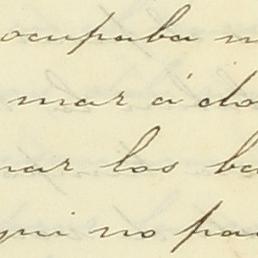 ocupaba m
mar á do
nar los ba
qui no pa